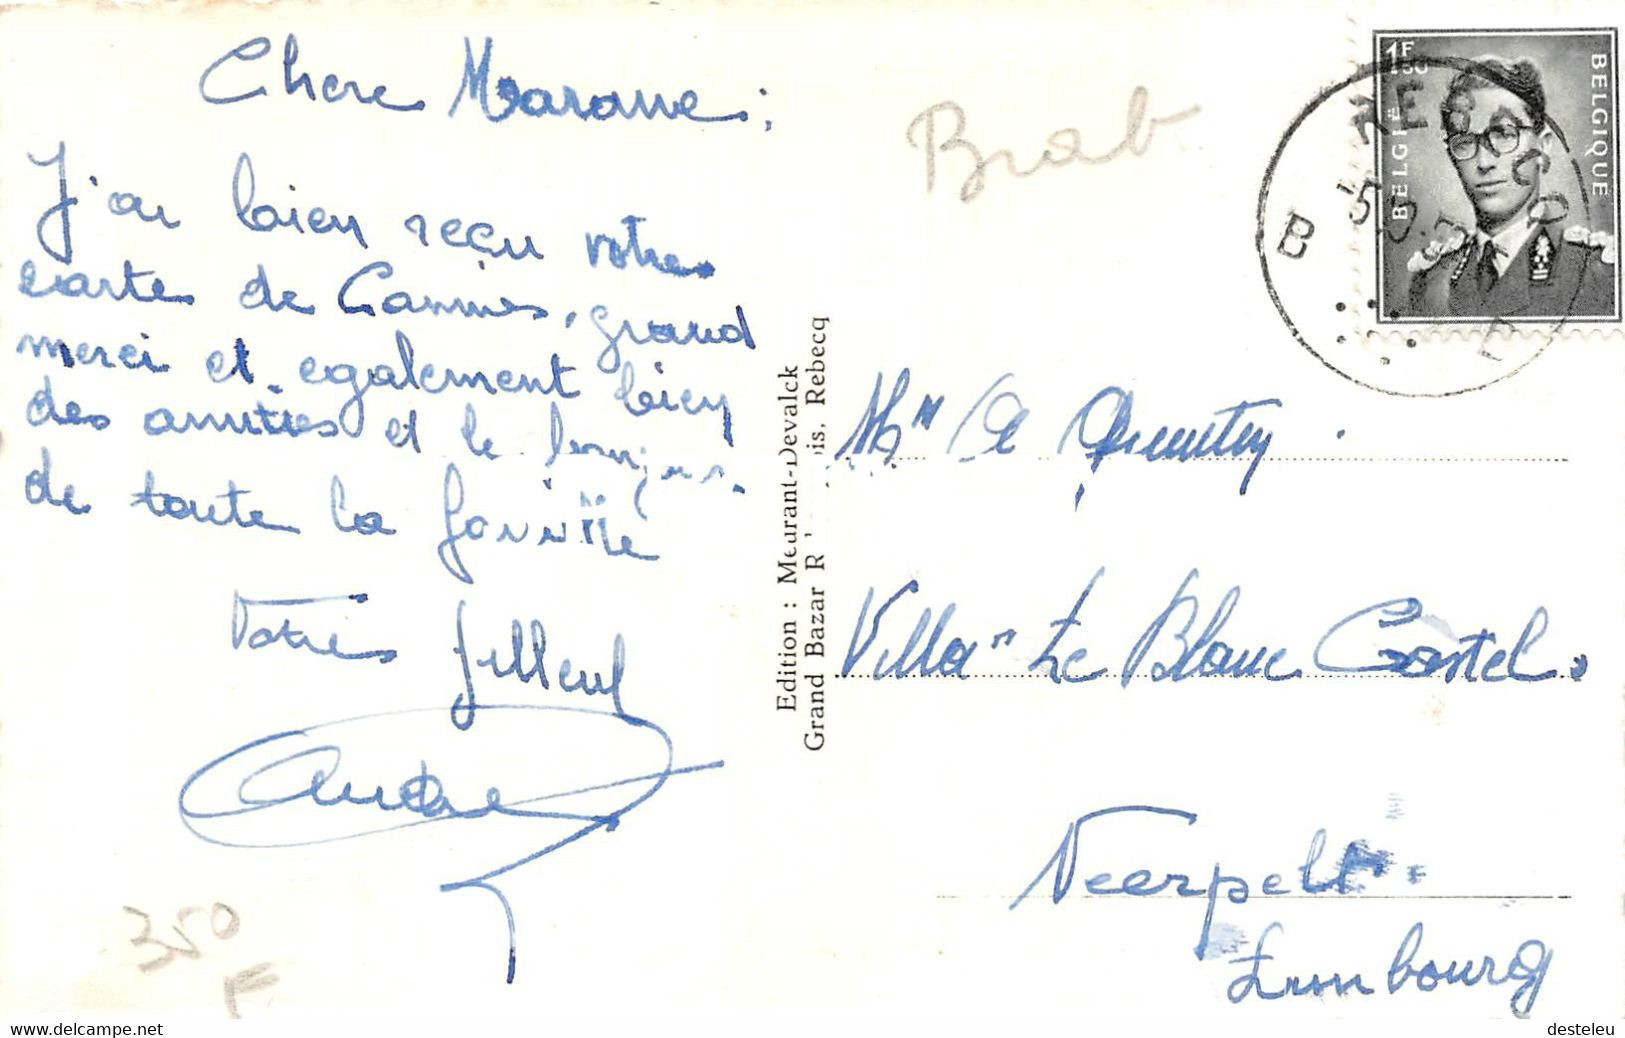 Chere Marame;
J'ai bien reçu votre
carte de Cannes, grand
merci et egalement bien
des amitiés et le bonjour
de toute la famille
Votre filleul
André
350
F
Brab
1F
50
BELGIË
BELGIQUE
REBECQ
B
Edition : Meurant-Devalck
Grand Bazar R is, Rebecq
Villa "Le Blanc Castel"
Neerpelt
Limbourg
http://www.delcampe.net
desteleu